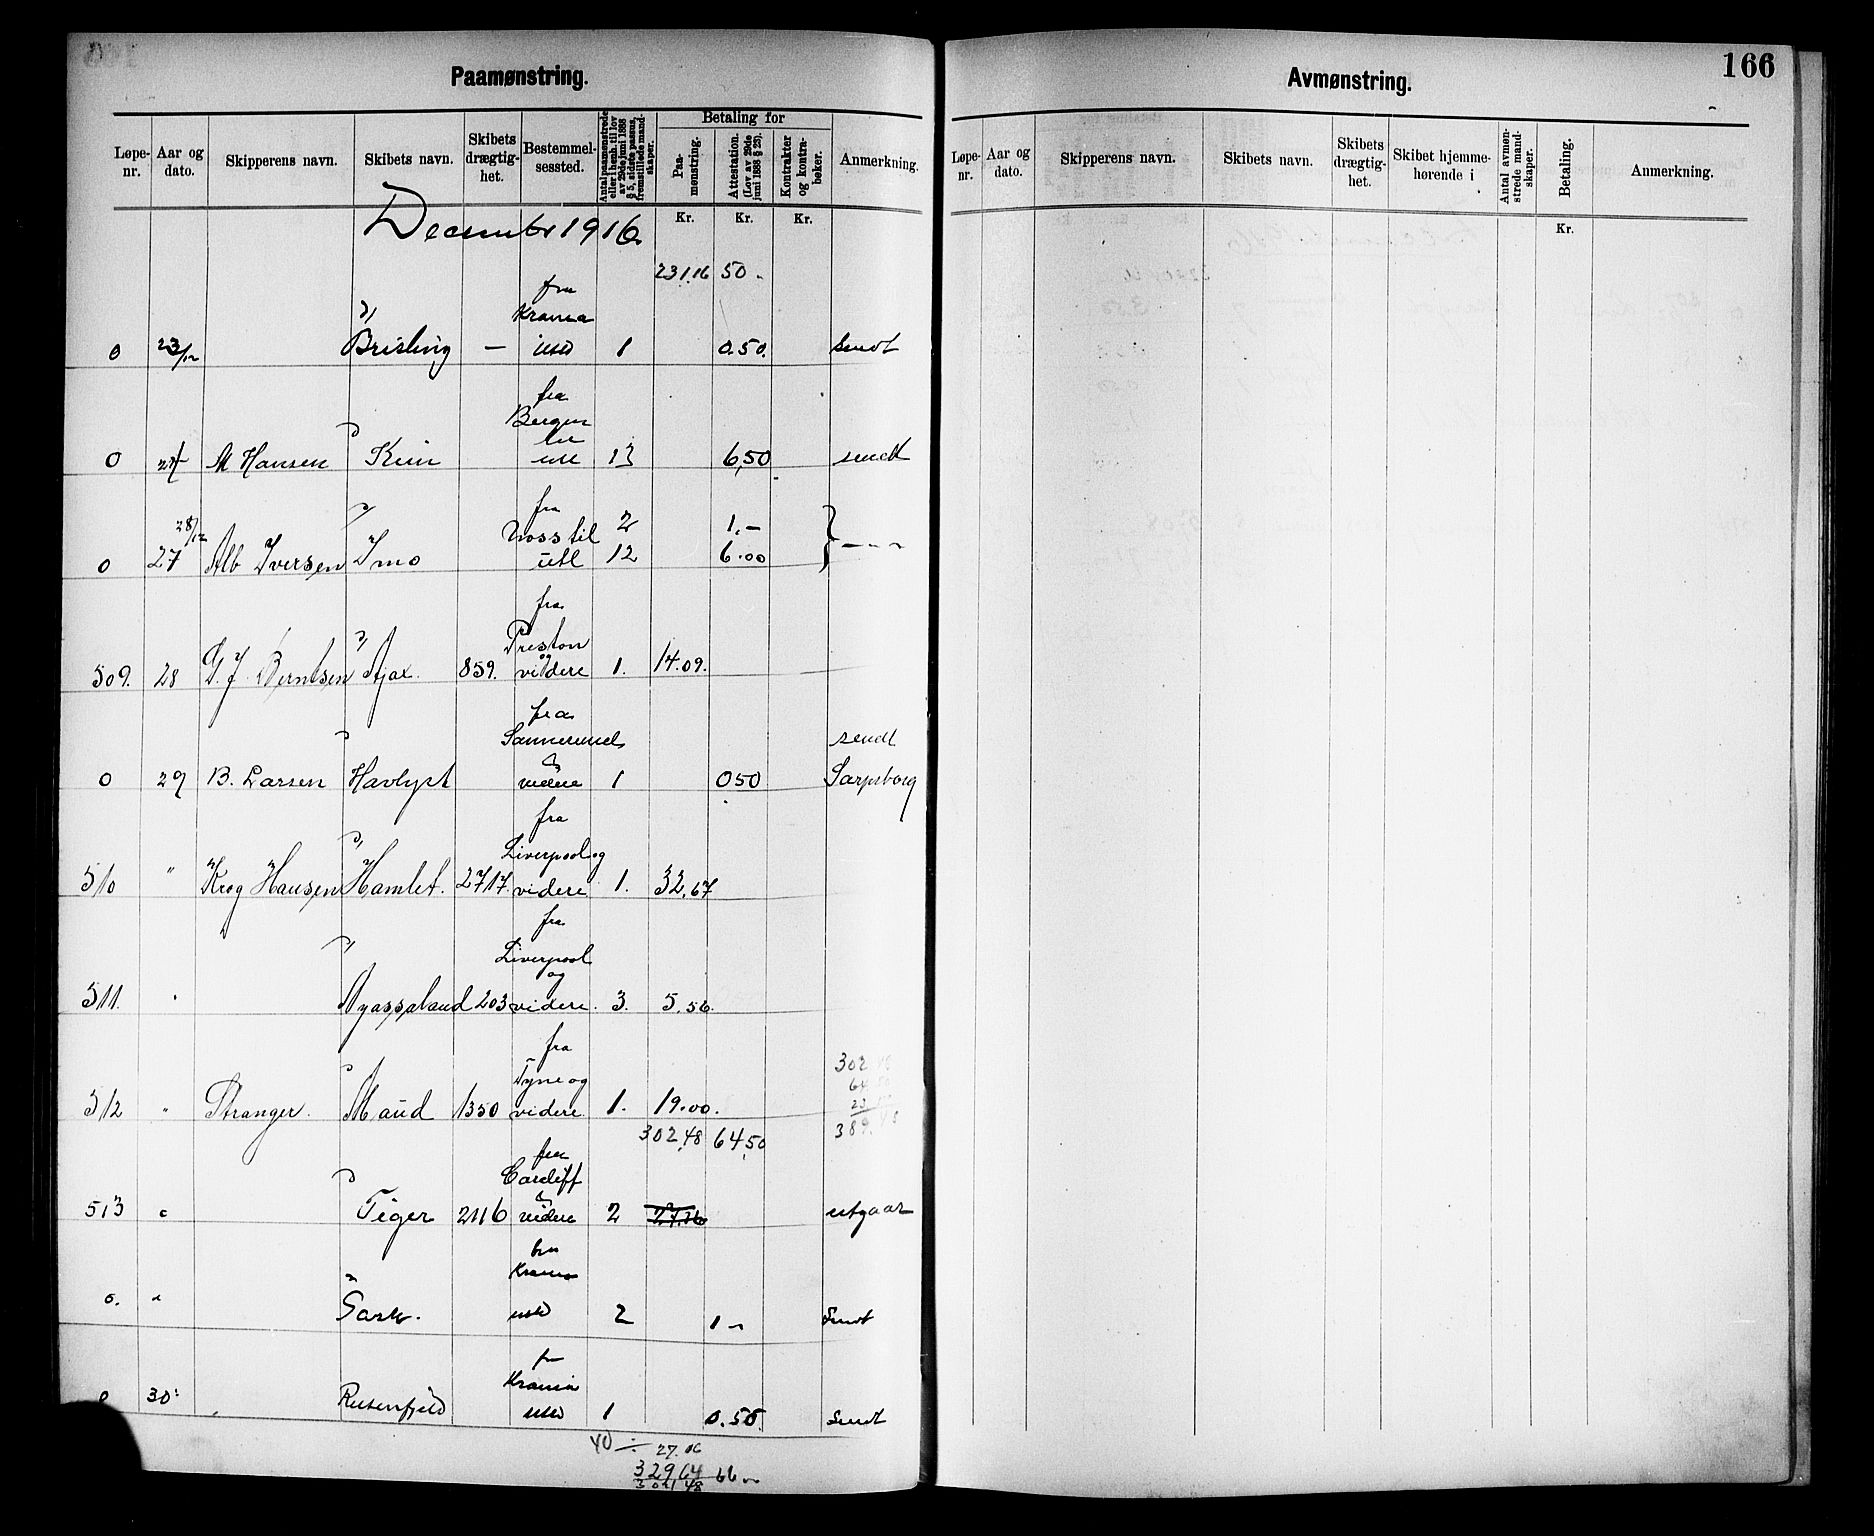 Paamønstring.
Løpe-nr. Aar og dato. Skipperens navn. Skibets navn. Skibets drægtig-het. Bestemmel-sessted. Antal paamønstrede eller i henh. til lov av 29de juni 1888 § 5, sidste passus, fremstillede mand-skaper. Betaling for Paa-mønstring. Attestation. (Lov av 29de juni 1888 § 23). Kontrakter og kontra-bøker. Anmerkning.
December 1916 Kr. Kr. Kr.
231.16 50
fra
Krania
0 23/12 Brisling — 1 0.50. sendt
fra
Bergen
0 M Hansen 13 6,50 sendt
fra
28/12 til 2 1.–
0 27 Alb Iversen Imo utl 12 6.00
fra
Preston
og
509. 28 G. J. Berntsen Ajax. 859. videre 1. 14.09.
fra
Sannesund sendt
0 29 B. Larsen Havlyst videre 1 050 Sarpsborg
fra
Liverpool og
510 " Krog Hansen Hamlet. 2717. videre 1. 32.67
fra
Liverpool
og
511. Nyassaland 203 videre. 3. 5.56.
fra 302.48
Tyne og 64.50
512 " Stranger. Maud 1350 videre. 1. 19.00.
302.48 64,50 389.
fra
Cardiff
513 Tiger 2116 videre 2 27.16 utgaar
fra
Krania
0. " 2 1 – sendt
fr
Krania
30 1 0.50. sendt
40 ÷ 27.16
329 64 66
302 48
166
Avmønstring.
Løpe-nr. Aar og dato. Skipperens navn. Skibets navn. Skibets drægtig-het. Skibet hjemme-hørende i Antal avmøn-strede mand-skaper. Betaling. Anmerkning.
Kr.